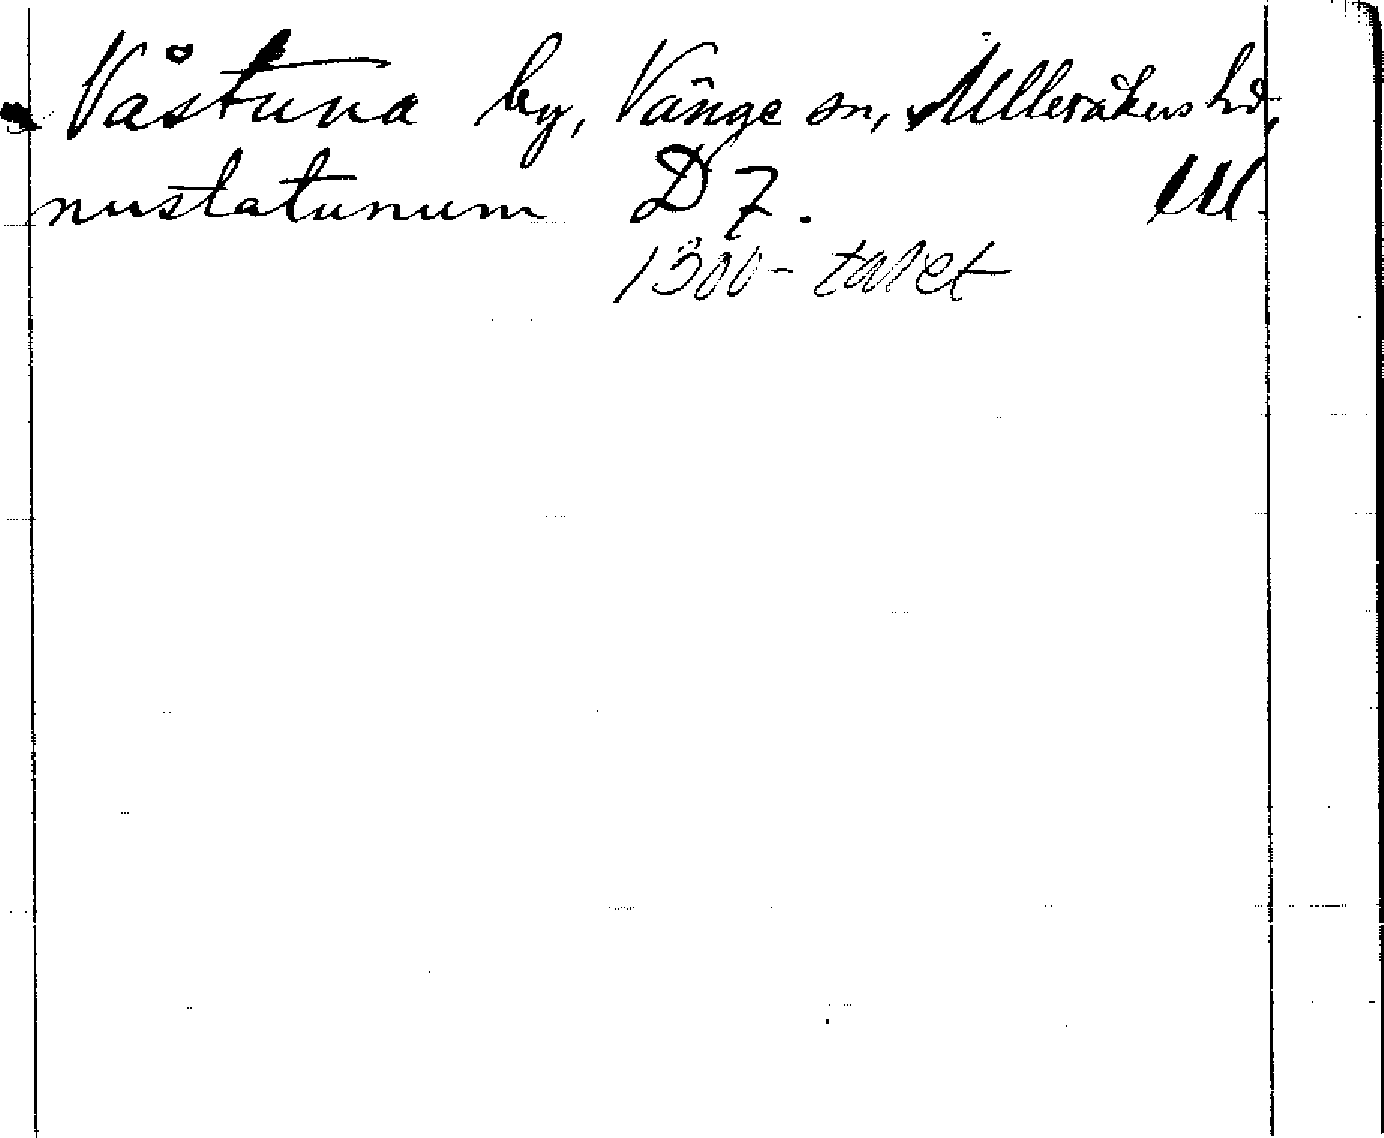 Våstuna by, Vänge sn, Ulleråkers hd,
nustatunum D 7. Ul.
1300-talet